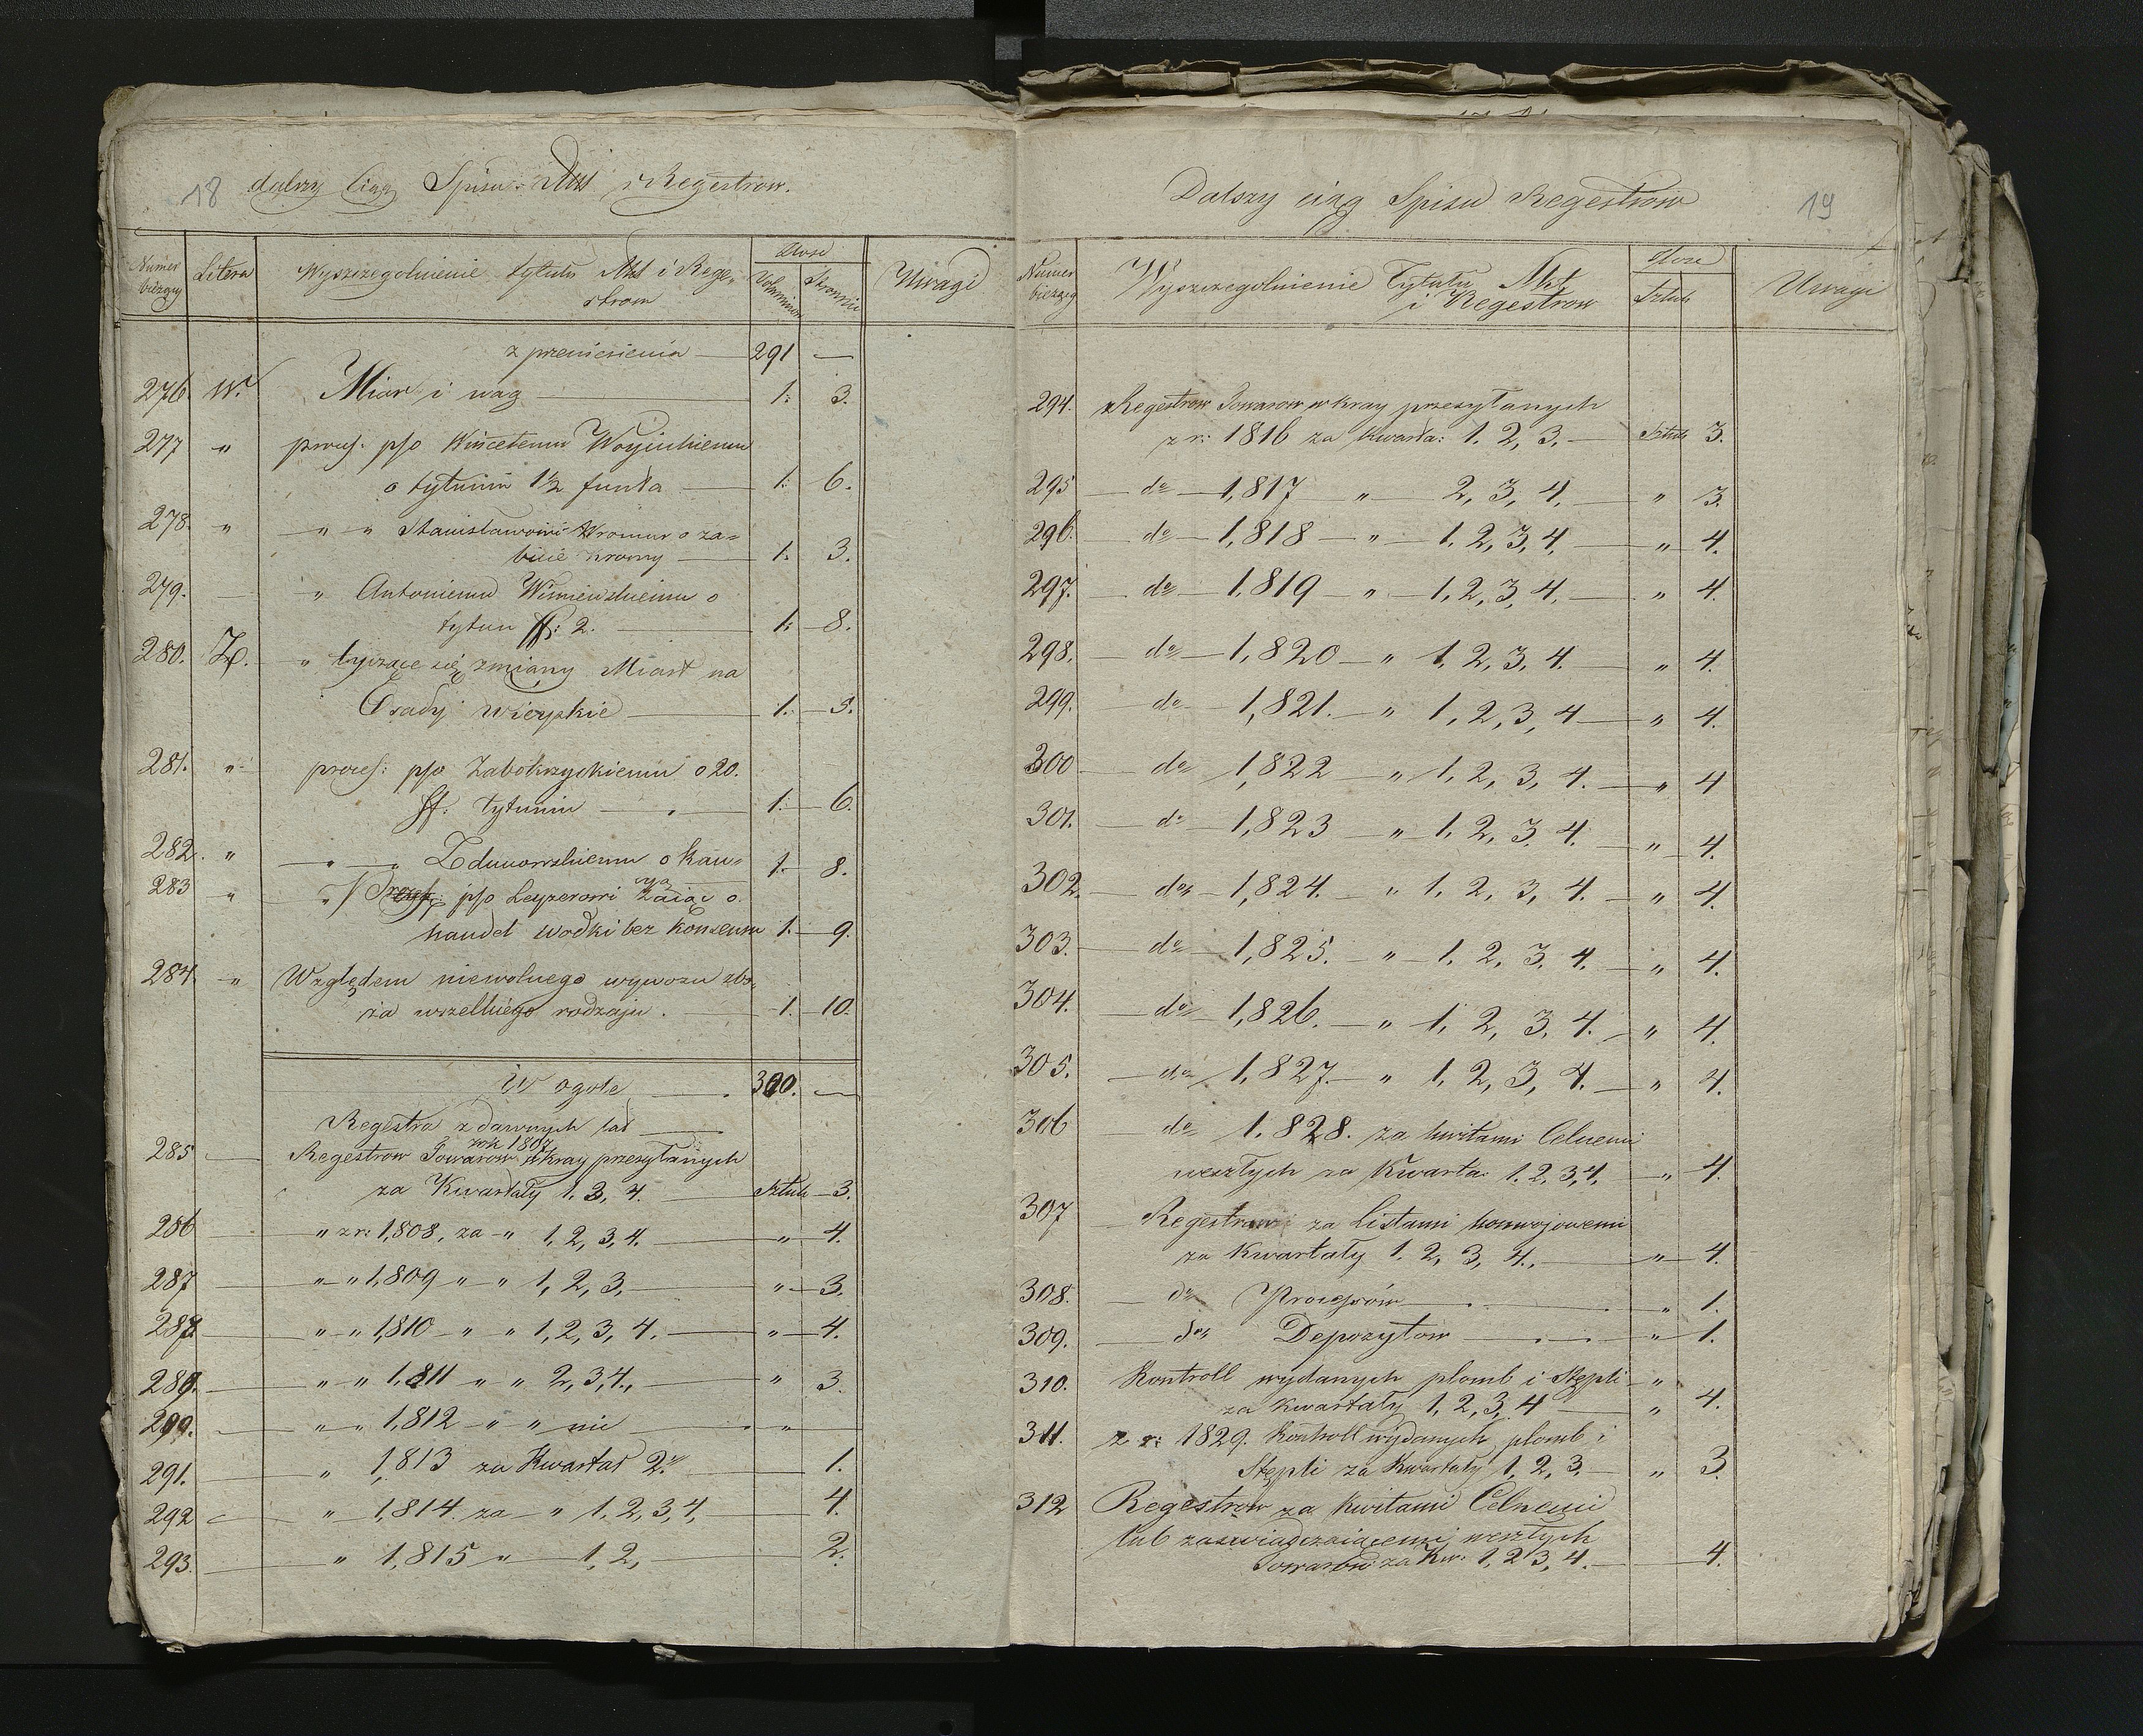 18 dalszy Ciąg Spisu Akt i Regestrow.
Numer bieżący Litera Wyszczegolnienie tytułu Akt i Rege-
strow
Ilosc
Voluminow Stronnic
Uwagi
z przeniesienia — 291 —
276. W. Miar i wag — 1. 3.
277 " proces: p/o Wincętemu Woycickiemu
o tytuniu 1½ funta — 1. 6.
278. " — " — " Stanisławowi Kromur o za=
bicie krowy — 1. 3.
279. — " Antoniemu Wisniewskiemu o
tytun ff: 2. — 1. 8.
280. Z. " tyczące się zmiany Miast na
Osady wieyskie — 1. 5.
281. " proces: p/o Zabokrzyckiemu o 20.
ff: tytuniu — 1. — 6.
282. " — " — " Zdunowskiemu o kau=
cya 1. 8.
283 " " p/o Leyzerowi Zaiąc o
handel wodki bez konsensu 1. — 9.
284. " Względem niewolnego wywozu zbo-
ża wszelkiego rodzaju. — 1. — 10.
W ogole — 300. —
Regestra z dawnych lat —
rok 1807
285 — Regestrow Towarow w kray przesyłanych
za Kwartały 1. 3, 4. — Sztuk — 3.
286 — " z r: 1,808, za — " 1, 2, 3, 4. — " — 4.
287 — " — " 1,809 " — " 1, 2, 3, — " — 3.
288 — " — " 1,810 — " — " 1, 2, 3, 4. — " — 4.
289. — " — " 1,811 " — " 2, 3, 4., — " 3.
290. — " — " 1,812 — " — " nic — "
291. — " 1,813 za Kwartał 2gi — 1.
292 — " — 1,814. za — " 1, 2, 3, 4, — 4.
293. — " 1,815 " — 1, 2, — 2.
Dalszy ciąg Spisu Regestrów 19
Numer bieżący Wyszczegolnienie Tytułu Akt
i Regestrow
Ilosc
Sztuk
Uwagi
294. Regestrow Towarow w kray przesyłanych
z r: 1816 za kwarta: 1. 2, 3. — Sztuk 3.
295 — do — 1,817 — " — 2, 3, 4. — " 3.
296. — do — 1,818 — " — 1, 2, 3, 4, — " — 4.
297. — do — 1,819 — " — 1, 2, 3, 4. — " 4.
298. — do — 1,820 — " 1, 2, 3, 4. — " 4.
299. do — 1,821. — " 1, 2, 3, 4 — " 4.
300 — do 1,822 — " 1, 2, 3, 4. — " 4
301. — do 1,823 — " 1, 2, 3, 4. — " — 4.
302. — do — 1,824. — " 1, 2, 3, 4. — " 4.
303. — do — 1,825. — " — 1, 2, 3, 4. — " 4.
304. — do 1,826. — " 1, 2, 3, 4. — " 4.
305. — do 1,827. — " 1, 2, 3, 4. — " 4.
306 — do 1.828. za kwitami Celnemi
weszłych za Kwarta: 1. 2, 3, 4, — " — 4.
307 — Regestrow za Listami konwojowemi
za Kwartały 1. 2, 3, 4., — " — 4.
308. — do Processów — " 1.
309. — do Depozytow — " — 1.
310. Kontroll wydanych plomb i Stępli — "
za kwartały 1, 2, 3, 4 — " 4.
311. z r: 1829. Kontroll wydanych plomb i
Stępli za Kwartały 1, 2, 3. — " 3.
312 Regestrow za Kwitami Celnemi
lub zaswiadczaiącemi weszłych
Towarów za Kw: 1, 2, 3, 4. — 4.